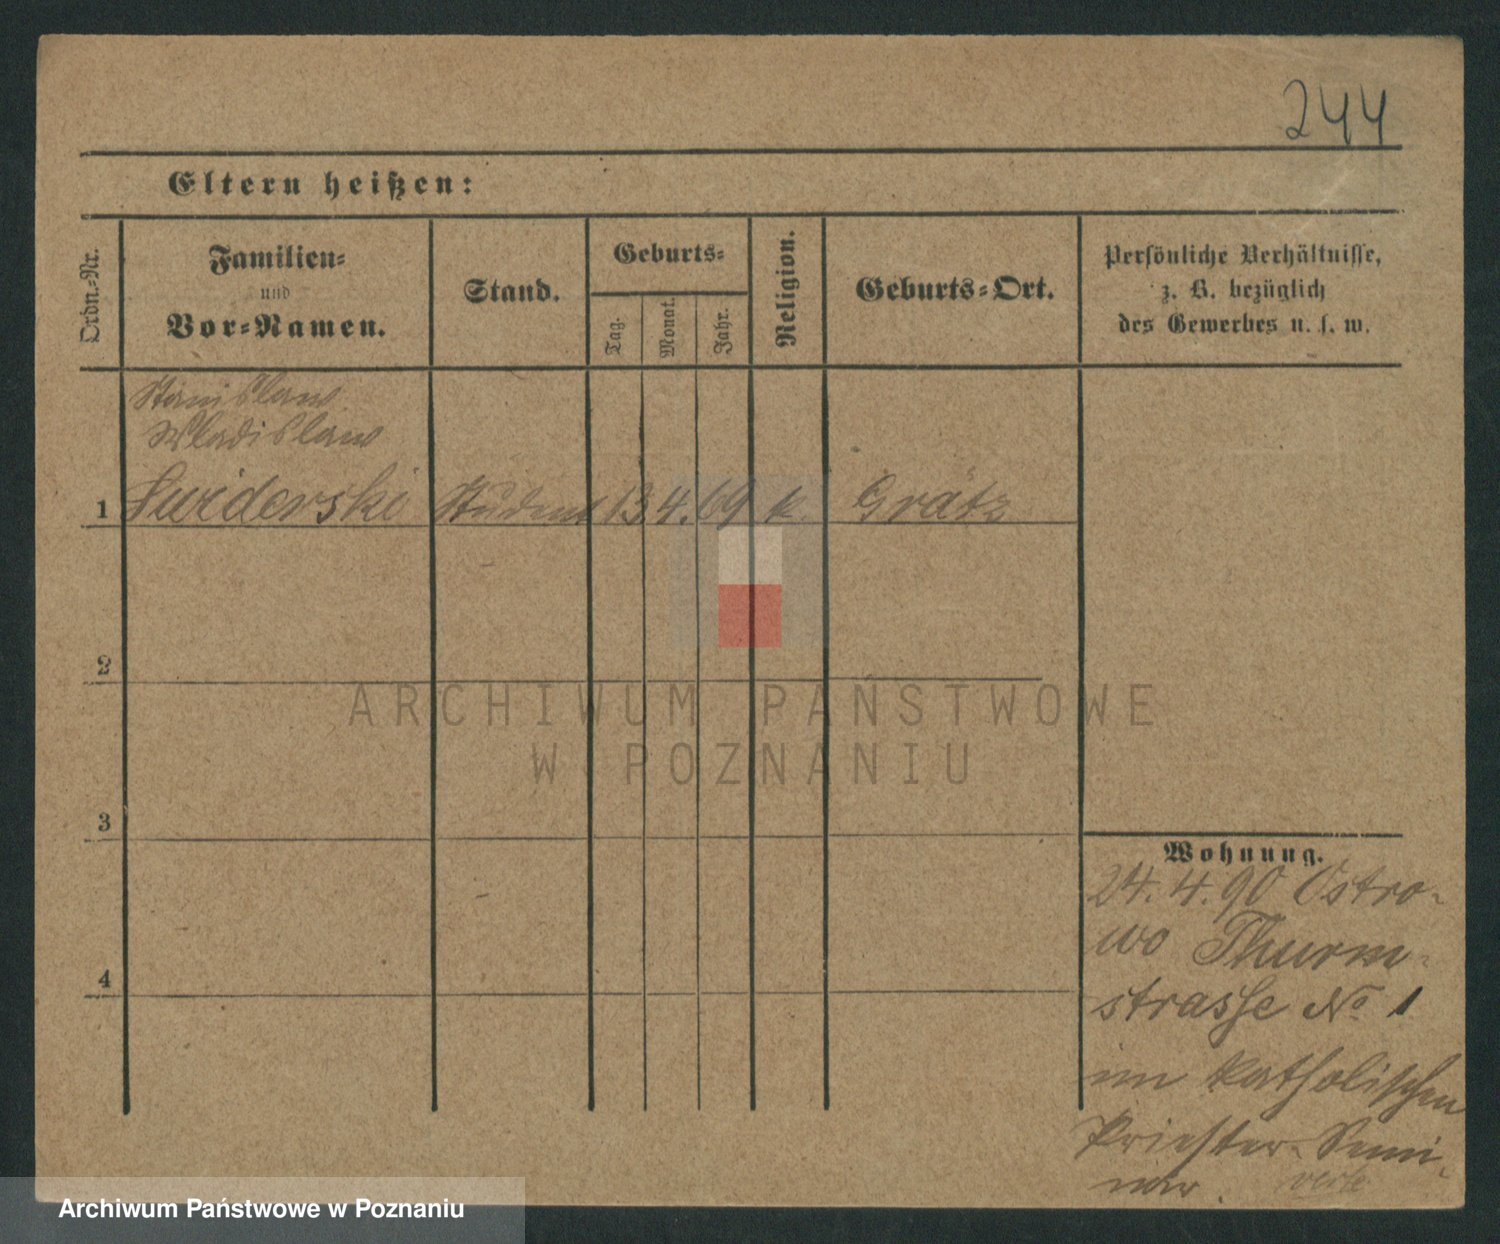 244
Eltern heißen:
Ordn.-Nr.
Familien-
und
Vor-Namen.
Stand.
Geburts-
Tag.
Monat.
Jahr.
Religion.
Geburts-Ort.
Persönliche Verhältnisse,
z. B. bezüglich
des Gewerbes u. s. w.
Stanislaw
Wladislaw
1 Student 13. 4. 69 k. Grätz
2
3
4
Wohnung.
24. 4. 90 Ostro-
wo Thurm-
strasse No 1
im katholischen
Priester-Semi-
nar.
ARCHIWUM PAŃSTWOWE
W POZNANIU
Archiwum Państwowe w Poznaniu